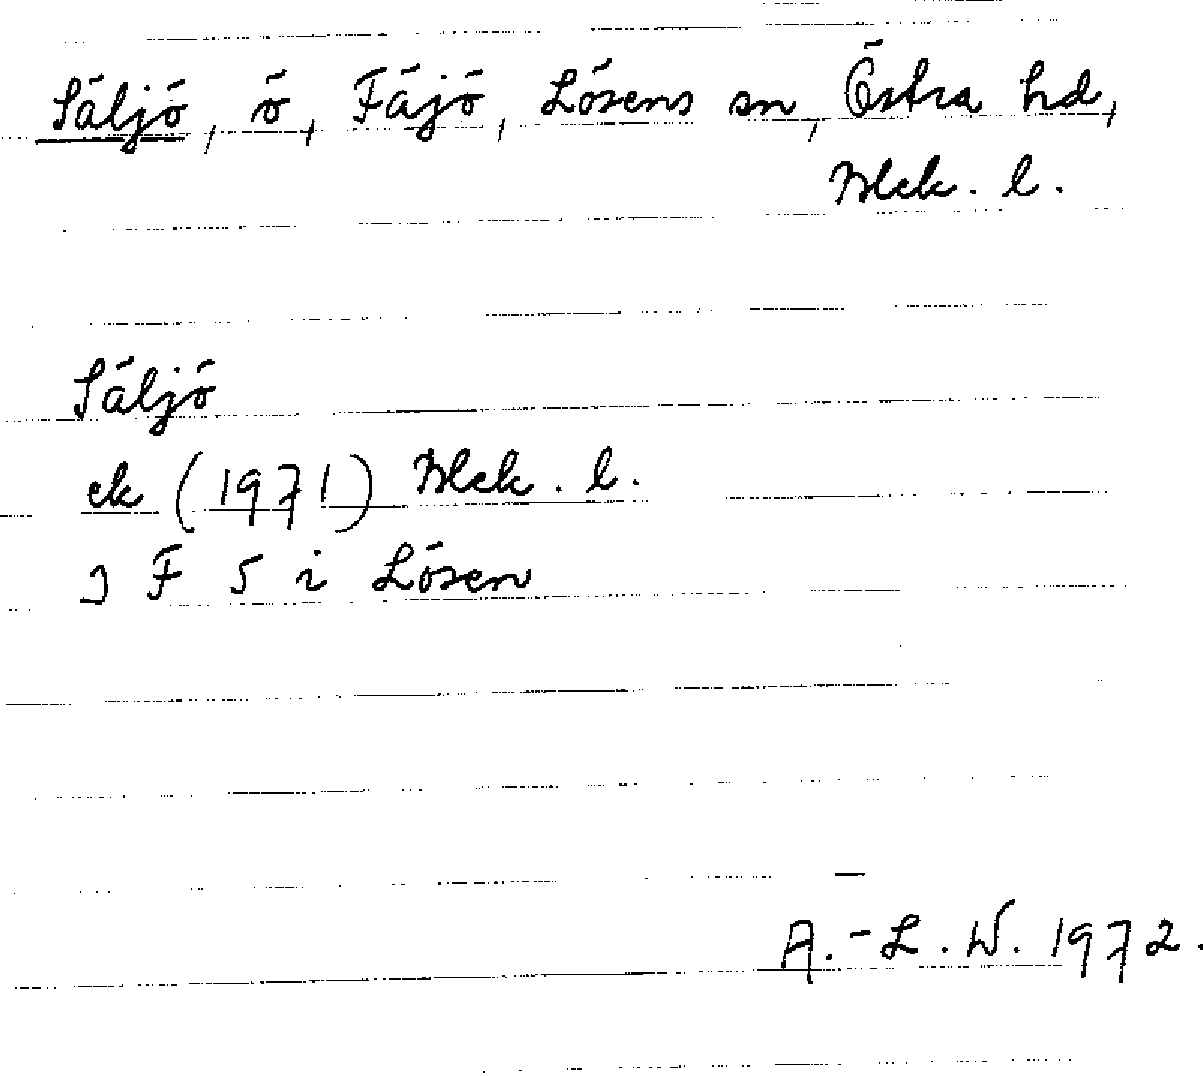 Säljö, ö, Fäjö, Lösens sn, Östra hd,
Blek. l.
Säljö
ek (1971) Blek. l.
3 F 5 i Lösen
A.-L. W. 1972.